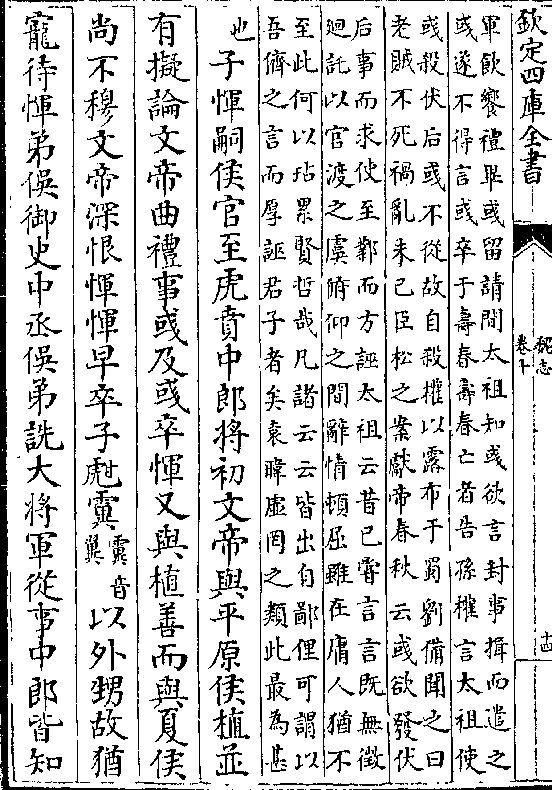 欽定四庫全書
魏志
卷十
十四
軍飲饗禮畢彧留請間太祖知彧欲言封事揖而遣之
彧遂不得言彧卒于壽春壽春亡者告孫權言太祖使
彧殺伏后彧不從故自殺權以露布于蜀劉備聞之曰
老賊不死禍亂未已臣松之案獻帝春秋云彧欲發伏
后事而求使至鄴而方誣太祖云昔已甞言言既無徵
迴託以官渡之虞俯仰之間辭情頓屈雖在庸人猶不
至此何以玷累賢哲哉凡諸云云皆出自鄙俚可謂以
吾儕之言而厚誣君子者矣袁暐虛罔之類此最為甚
也子惲嗣侯官至虎賁中郎將初文帝與平原侯植並
有擬論文帝曲禮事彧及彧卒惲又與植善而與夏侯
尚不穆文帝深恨惲惲早卒子甝霬霬音翼以外甥故猶
寵待惲弟俁御史中丞俁弟詵大將軍從事中郎皆知